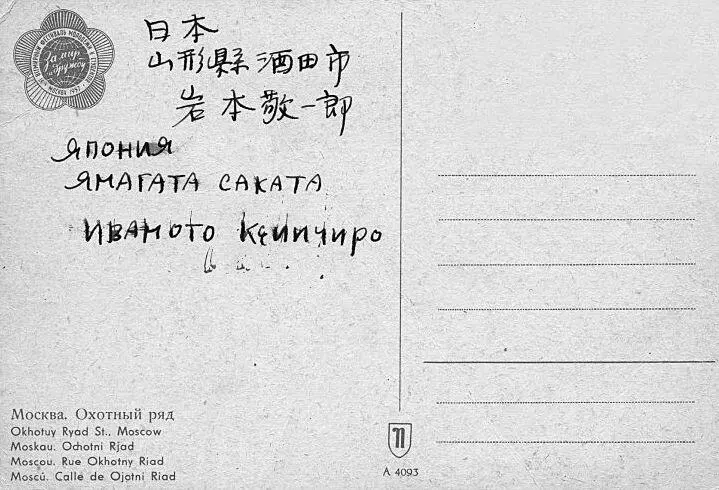 За мир
и дружбу
日本
山形縣酒田市
岩本敬一郎
ЯПОНИЯ
ЯМАГАТА САКАТА
ИВАМОТО КЕИИЧИРО
Москва. Охотный ряд
Okhotuy Ryad St., Moscow
Moskau. Ochotni Rjad
Moscou. Rue Okhotny Riad
Moscú. Calle de Ojotni Riad
A 4093